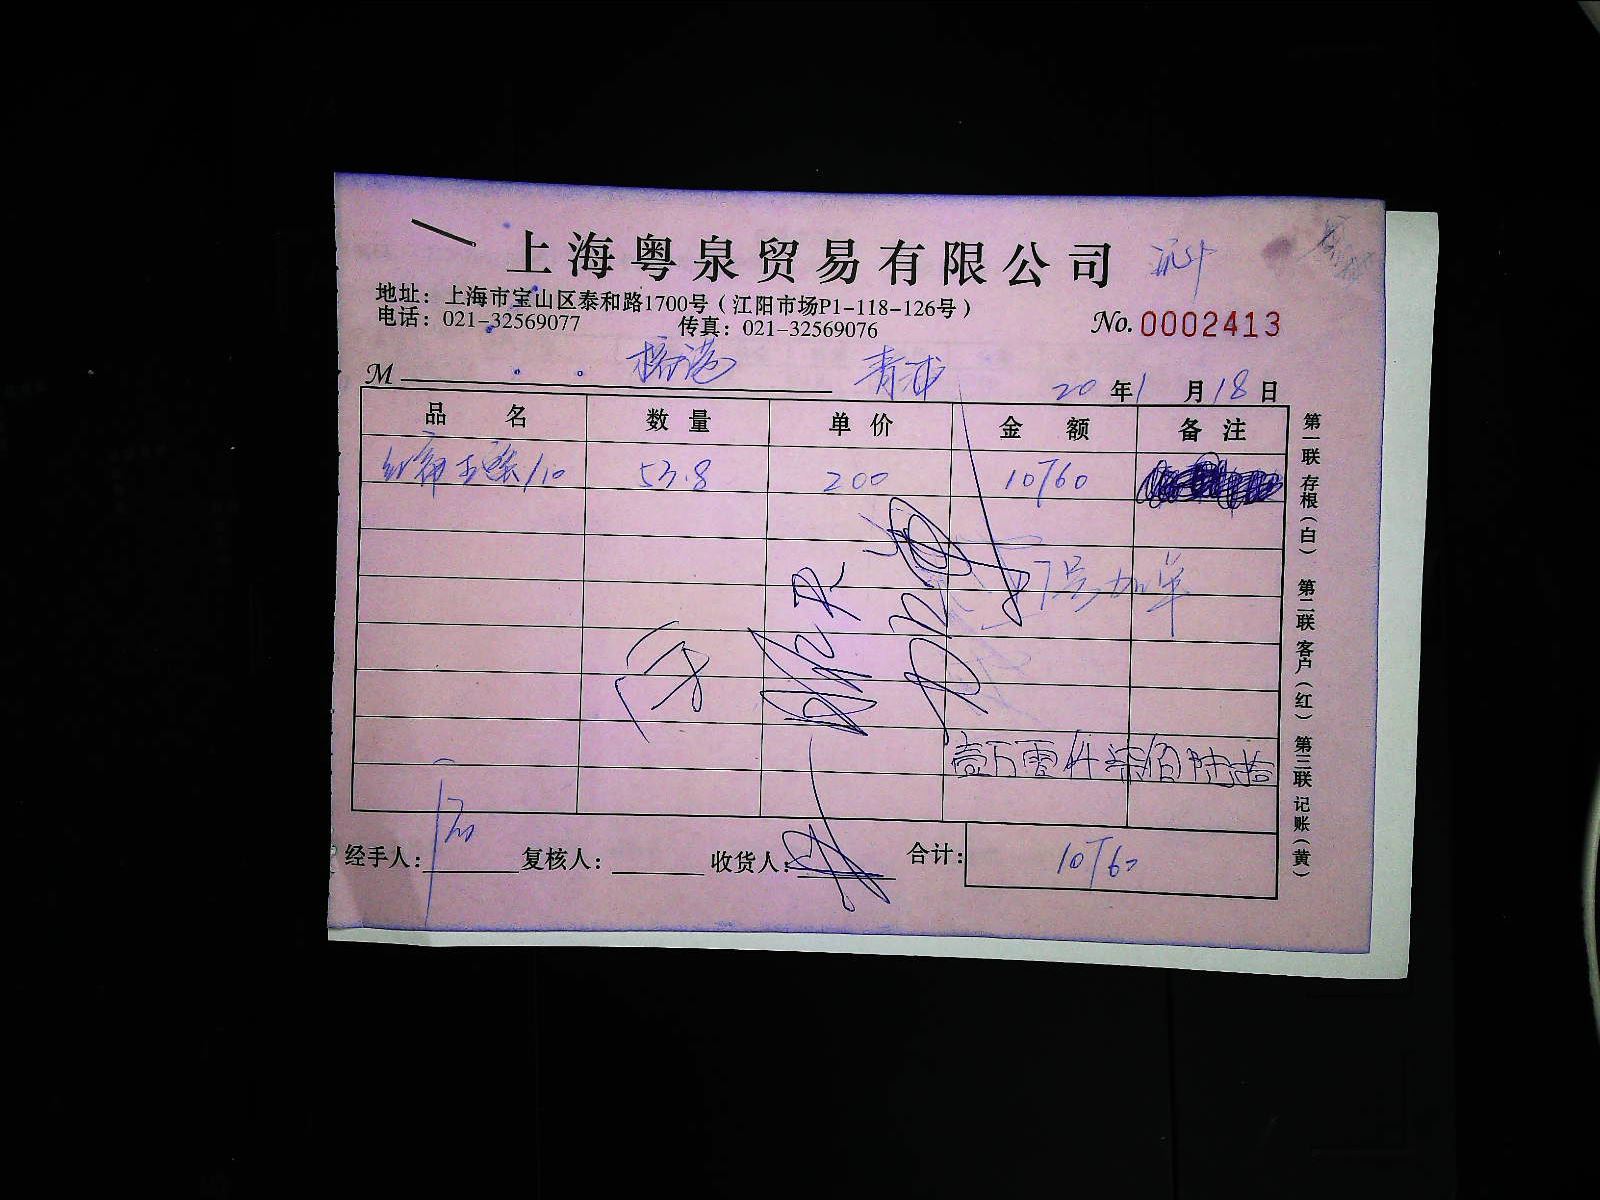 上海粤泉贸易有限公司
地址：上海市宝山区泰和路1700号（江阳市场P1-118-126号）
电话：021-32569077 传真：021-32569076
No. 0002413
M 青浦 20年1月18日
品名 数量 单价 金额 备注
53.8 200 10760
7号加单
壹万零仟柒佰陆拾
经手人： 复核人： 收货人： 合计： 10760
第一联 存根（白） 第二联 客户（红） 第三联 记账（黄）